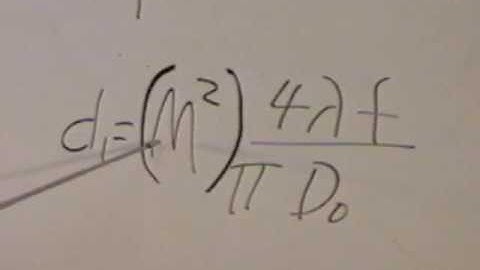 d₁=(M²) 4λf / π D₀